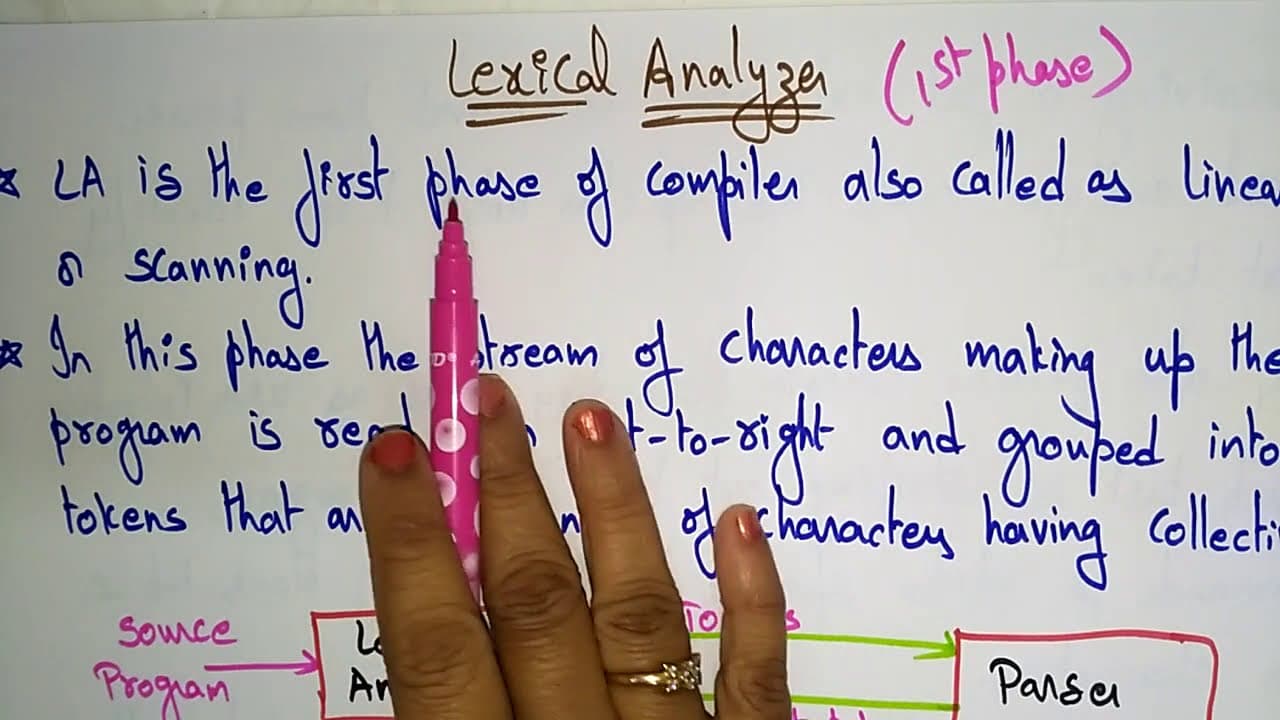 Lexical Analyzer (1st phase)
* LA is the first phase of compiler also called as linea
or scanning.
* In this phase the stream of characters making up the
program is read t-to-right and grouped into
tokens that of characters having collecti
Source
Program
Parser